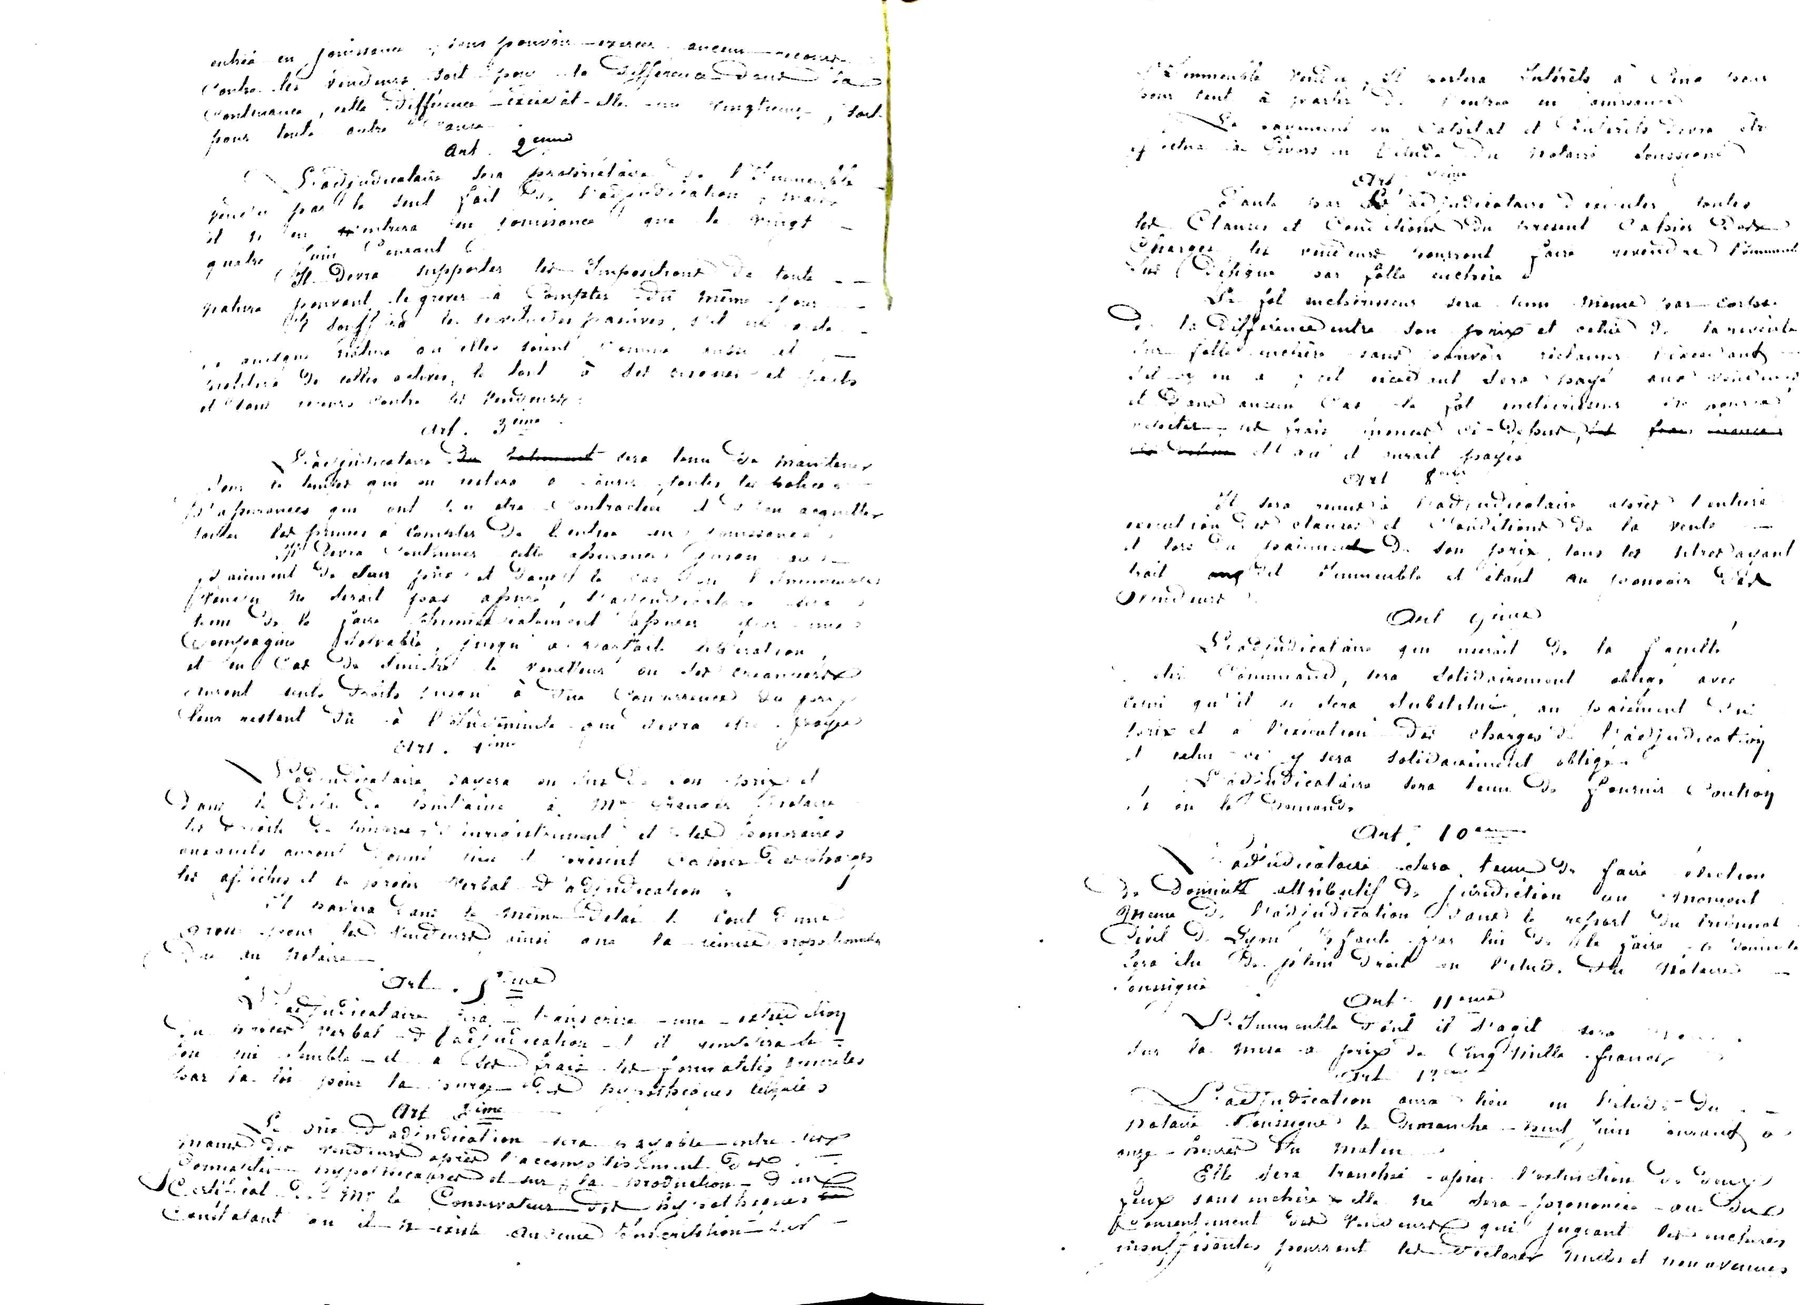 entrée en jouissance, sans pouvoir exercer aucun recours
contre les vendeurs soit pour la différence dans la
contenance, cette différence excédât-elle un vingtième, soit
pour toute autre cause
Art. 2ème
L'adjudicataire sera propriétaire de l'Immeuble
vendu par le seul fait de l'adjudication, mais
il n'en entrera en jouissance que le vingt
quatre Juin courant
Il devra supporter les Impositions de toute
nature pouvant le grever à compter du même jour
Il souffrira les servitudes passives, s'il en existe
quelque nature qu'elles soient comme aussi il
profitera de celles actives, le tout à ses risques et périls
et sans recours contre les vendeurs.
Art. 3ème
L'adjudicataire du batiment sera tenu de maintenir
pour le temps qui en restera à courir, toutes les polices
d'assurances qui ont pu être contractées et d'en acquitter
toutes les primes à compter de l'entrée en jouissance
Il devra continuer cette assurance jusqu'au
paiement de son prix et dans le cas où l'Immeuble
vendu ne serait pas assuré, l'adjudicataire sera
tenu de le faire immédiatement assurer par une
Compagnie solvable, jusqu'à parfaite libération,
et en cas de sinistre le vendeur ou ses créanciers
auront seuls droits jusqu'à due concurrence du prix
leur restant dû à l'indemnité qui devra être payée
Art. 4ème
L'adjudicataire payera en sus de son prix et
dans le délai de huitaine à Me François Notaire
les droits de timbre d'enregistrement et les honoraires
auxquels auront donné lieu le présent Cahier des charges
les affiches et le procès verbal d'adjudication
Il payera dans le même délai le coût d'une
grosse pour les vendeurs ainsi que la remise proportionnelle
due au Notaire
Art. 5ème
L'adjudicataire fera transcrire une expédition
du procès verbal d'adjudication et il remplira si
bon lui semble et à ses frais les formalités voulues
par la loi pour la purge des hypothèques légales
Art 6ème
Le prix d'adjudication sera payable entre les
mains des vendeurs après l'accomplissement des
formalités hypothécaires et sur la production d'un
Certificat de Mr le Conservateur des hypothèques
Constatant qu'il n'existe aucune Inscription sur
l'Immeuble vendu, Il portera Intérêts à Cinq pour
pour cent à partir de l'entrée en jouissance
Le payement en Capital et Intérêts devra être
effectué à Givors en l'étude du Notaire soussigné
Art 7ème
Faute par l'adjudicataire d'exécuter toutes
les Clauses et Conditions du présent Cahier des
Charges, les vendeurs pourront faire revendre l'immeuble
sus désigné par folle enchère
Le fol enchérisseur sera tenu même par corps
de la différence entre son prix et celui de la revente
sur folle enchère sans pouvoir réclamer l'excédant
s'il y en a, cet excédant sera payé aux vendeurs
et dans aucun cas le fol enchérisseur ne pourra
répéter les frais énoncés ci-dessus, les frais énoncés
qu'il aurait payés
Art 8ème
Il sera remis à l'adjudicataire après l'entière
exécution des clauses et Conditions de la vente
et lors du paiement de son prix, tous les titres ayant
trait au dit Immeuble et étant au pouvoir des
Vendeurs
Art 9ème
L'adjudicataire qui userait de la faculté
d'élire Command, sera solidairement obligé avec
celui qu'il se sera substitué, au paiement du
prix et à l'exécution des charges de l'adjudication
et celui-ci y sera solidairement obligé
L'adjudicataire sera tenu de fournir Caution
si on le demande
Art. 10ème
L'adjudicataire sera tenu de faire élection
de Domicile attributif de juridiction au moment
même de l'adjudication dans le ressort du tribunal
Civil de Lyon, à faute par lui de le faire ce domicile
sera élu de plein droit en l'étude du Notaire
soussigné
Art. 11ème
L'Immeuble dont il s'agit sera
sur la mise à prix de Cinq Mille francs
Art 12ème
L'adjudication aura lieu en l'étude du
notaire soussigné le Dimanche neuf Juin courant à
onze heures du matin
Elle sera tranchée après l'extinction de deux
feux sans enchère elle ne sera prononcée que du
consentement des vendeurs qui jugeant les enchères
insuffisantes pourront les déclarer nulles et non avenues